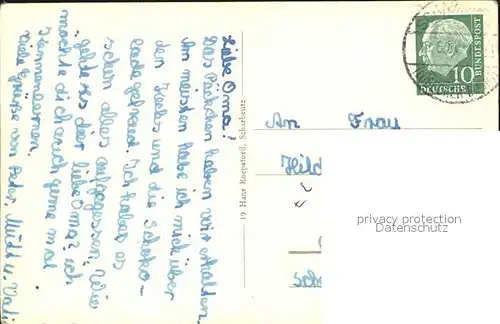 Liebe Oma!
Das Päckchen haben wir erhalten.
Am meisten habe ich mich über
den Keks und die Schoko-
lade gefreut. Ich habe es
schon alles aufgegessen. Wie
geht es dir liebe Oma? ich
möchte dich auch gerne mal
kennenlernen.
Viele Grüße von Peter, Mutti u. Vati
19 Hans Roepstorff, Scharbeutz
An Frau
Hild
Sch
privacy protection
datenschutz
10
DEUTSCHE
BUNDESPOST